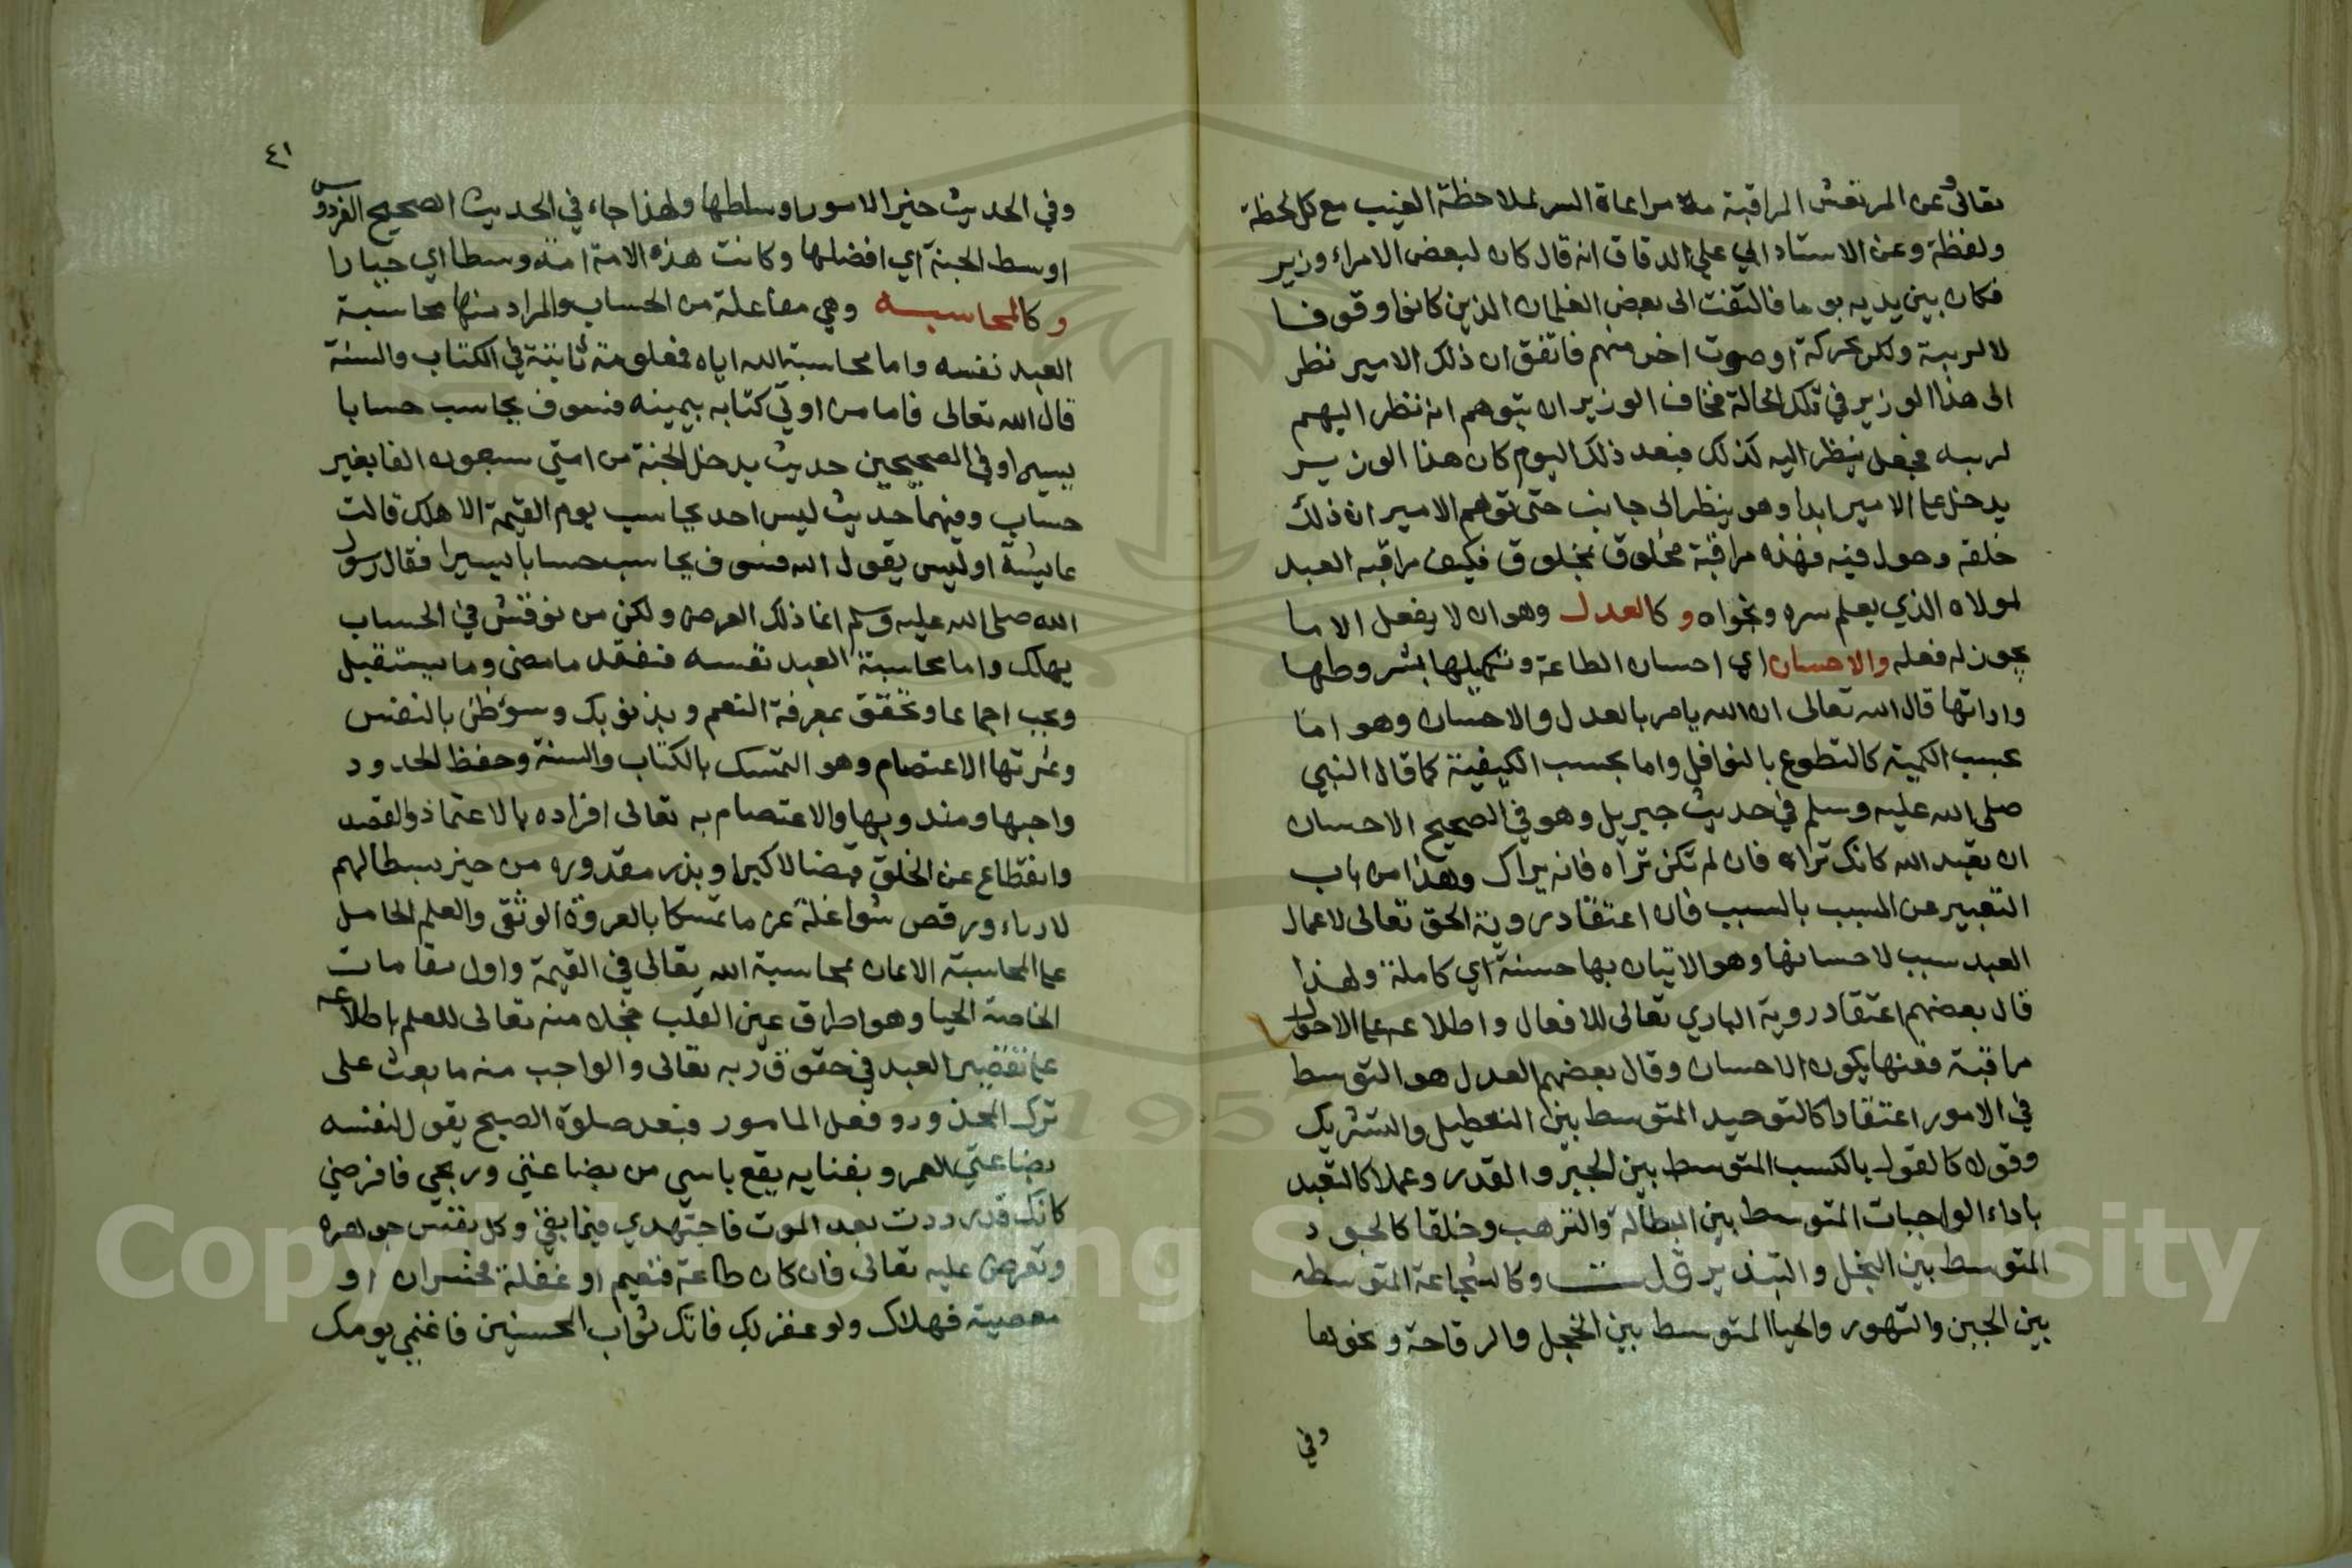 تعالى وعن المرتعش المراقبة مراعاة السر لملاحظة الغيب مع كل لحظة
ولفظة وعن الاستاد ابي علي الدقاق انه قال كان لبعض الامراء وزير
فكان بين يديه يوما فالتفت الى بعض الغلمان الذين كانوا وقوفا
لا لريبة ولكن لحركة او صوت احس منهم فاتفق ان ذلك الامير نظر
الى هذا الوزير في تلك الحالة فخاف الوزير ان يتوهم انه نظر اليهم
لريبه فجعل ينظر اليه كذلك فبعد ذلك اليوم كان هذا الوزير
يدخل على الامير ابدا وهو ينظر الى جانب حتى توهم الامير ان ذلك
خلقه وحول فيه فهذه مراقبة مخلوق بمخلوق فكيف مراقبه العبد
لمولاه الذي يعلم سره ونجواه و كالعدل وهو ان لا يفعل الا ما
يجوز له فعله والاحسان اي احسان الطاعة وتكميلها بشروطها
وادابها قال الله تعالى ان الله يامر بالعدل والاحسان وهو اما
بحسب الكمية كالتطوع بالنوافل واما بحسب الكيفية كما قال النبي
صلى الله عليه وسلم في حديث جبريل وهو في الصحيح الاحسان
ان تعبد الله كانك تراه فان لم تكن تراه فانه يراك وهذا من باب
التعبير عن المسبب بالسبب فان اعتقاد روية الحق تعالى لاعمال
العبد سبب لاحسانها وهو الاتيان بها حسنة اي كاملة ولهذا
قال بعضهم اعتقاد روية الباري تعالى للافعال واطلاعه على الاحوال
مراقبة فعنها يكون الاحسان وقال بعضهم العدل هو التوسط
في الامور اعتقادا كالتوحيد المتوسط بين التعطيل والتشريك
وقولا كالقول بالكسب المتوسط بين الجبر والقدر وعملا كالتعبد
باداء الواجبات المتوسط بين البطالة والترهب وخلقا كالجود
المتوسط بين البخل والتبذير قلت وكالشجاعة المتوسطه
بين الجبن والتهور والحيا المتوسط بين الخجل والوقاحة ونحوها
وفي
٤١
وفي الحديث خير الامور اوساطها ولهذا جاء في الحديث الصحيح الفردوس
اوسط الجنة اي افضلها وكانت هذه الامة امة وسطا اي خيارا
و كالمحاسبه وهي مفاعلة من الحساب والمراد منها محاسبة
العبد نفسه واما محاسبة الله اياه فمعلومة ثابتة في الكتاب والسنة
قال الله تعالى فاما من اوتي كتابه بيمينه فسوف يحاسب حسابا
يسيرا وفي الصحيحين حديث يدخل الجنة من امتي سبعون الفا بغير
حساب وفيهما حديث ليس احد يحاسب يوم القيمة الا هلك قالت
عايشة اوليس يقول الله فسوف يحاسب حسابا يسيرا فقال رسول
الله صلى الله عليه وسلم انما ذلك العرض ولكن من نوقش في الحساب
يهلك واما محاسبة العبد نفسه فتفقد ما مضى وما يستقبل
ويجب اجماعا وتحقق بمعرفة النعم وبذنوبك وسؤ ظن بالنفس
وثمرتها الاعتصام وهو التمسك بالكتاب والسنة وحفظ الحدود
واجبها ومندوبها والاعتصام به تعالى افراده بالاعتماد والقصد
وانقطاع عن الخلق من حيز سبطالهم
لا رياء ورفض شواغلة عن ما تمسكا بالعروة الوثقى والعلم الحامل
على المحاسبة الايمان بمحاسبة الله تعالى في القيمة واول مقامات
الخاصة الحيا وهو اطراق عين القلب خجلا منه تعالى للعلم باطلاعه
على تقصير العبد في حقوق ربه تعالى والواجب منه ما بعث على
ترك المحذور وفعل المامور فبعد صلوة الصبح يقول لنفسه
بضاعتي العمر وبفنايه يقع ياسي من بضاعتي وربحي فافرضي
كانك قد رددت بعد الموت فاجتهدي فيما بقي وكل نفس جوهرة
وتعرض عليه تعالى فان كان طاعة فنعيم او غفلة فخسران او
معصية فهلاك ولو غفر لك فاتك ثواب المحسنين فاغنمي يومك
Copyright © King Saud University
1957